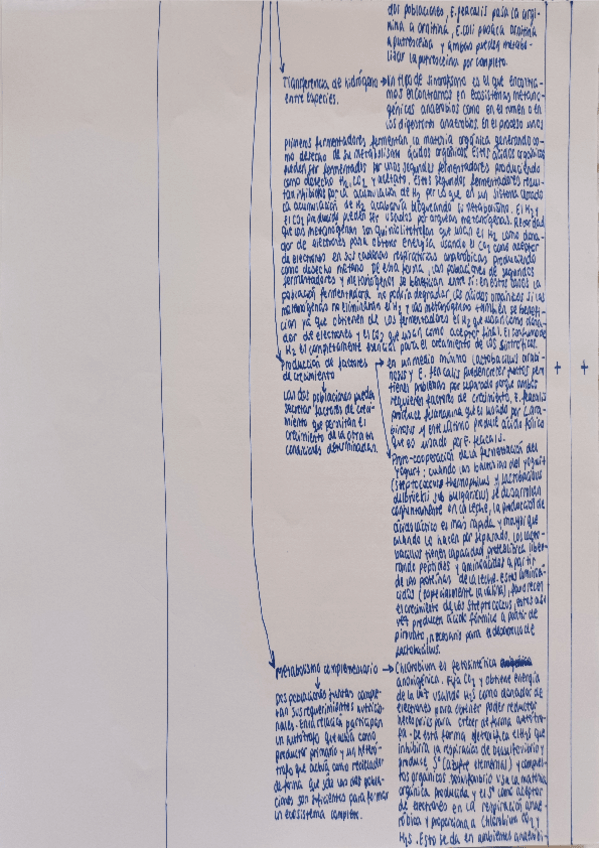 dos poblaciones, E. feacalis pasa la argi-
nina a ornitina, E. coli produce ornitina
a putrosceina y ambos pueden metabo-
lizar la putrosceina por completo.
Transferencia de hidrógeno
entre especies.
→ Un tipo de sintrofismo es el que encontra-
mos encontramos en ecosistemas metano-
génicos anaerobios como en el rumen o en
los digestores anaerobios. En el proceso unos
primeros fermentadores fermentan la materia orgánica generando co-
mo desecho de su metabolismo ácidos orgánicos. Estos ácidos orgánicos
pueden ser fermentados por unos segundos fermentadores produciendo
como desecho H2, CO2 y acetato. Estos segundos fermentadores resul-
tan inhibidos por la acumulación de H2 por lo que en un sistema cerrado
la acumulación de H2 acabaría bloqueando su metabolismo. El H2 y
el CO2 producido pueden ser usados por arqueas metanógenas.
que las metanógenas son quimiolitotrofas que usan el H2 como dona-
dor de electrones para obtener energía, usando el CO2 como aceptor
de electrones en sus cadenas respiratorias anaeróbicas produciendo
como desecho metano. De esta forma, las poblaciones de segundos
fermentadores y metanógenos se benefician entre sí: en estos casos la
población fermentadora no podría degradar los ácidos orgánicos si las
metanógenas no eliminaran el H2 y las metanógenas también se benefi-
cian ya que obtienen de los fermentadores el H2 que usan como dona-
dor de electrones y el CO2 que usan como aceptor final. El consumo de
H2 es completamente esencial para el crecimiento de los sintróficos.
Producción de factores
de crecimiento
↓
Las dos poblaciones pueden
secretar factores de creci-
miento que permitan el
crecimiento de la otra en
condiciones determinadas.
→ en un medio mínimo Lactobacillus arabi-
nosus y E. feacalis pueden crecer juntos pero
tienes problemas por separado porque ambos
requieren factores de crecimiento. E. feacalis
produce fenilalanina que es usado por L. ara-
binosus y este último produce ácido fólico
que es usado por E. feacalis.
Proto-cooperación de la fermentación del
yogurt: cuando las bacterias del yogurt
(Streptococcus thermophilus y Lactobacillus
delbrueckii sub. bulgaricus) se desarrollan
conjuntamente en la leche, la producción de
ácido láctico es más rápida y mayor que
cuando lo hacen por separado. Los lacto-
bacillus tienes capacidad proteolítica, libe-
rando péptidos y aminoácidos a partir
de las proteínas de la leche. Estos aminoá-
cidos (especialmente la valina), favorecen
el crecimiento de los streptococcus, estos a su
vez producen ácido fórmico a partir de
piruvato, necesario para el desarrollo de
lactobacillus.
Metabolismo complementario
↓
Dos poblaciones juntas comple-
tan sus requerimientos nutricio-
nales. En la relación participan
un autótrofo que actúa como
productor primario y un heteró-
trofo que actúa como reciclador
de forma que sólo unas dos pobla-
ciones son suficientes para formar
un ecosistema completo.
→ Chlorobium es fotosintética
anoxigénica. Fija CO2 y obtiene energía
de la luz usando H2S como donador de
electrones para obtener poder reductor
necesarios para crecer de forma autótro-
fa. De esta forma detoxifica el H2S que
inhibiría la respiración de Desulfovibrio y
produce S° (azufre elemental) y compues-
tos orgánicos. Desulfovibrio usa la materia
orgánica producida y el S° como aceptor
de electrones en la respiración anae-
róbica y proporciona a Chlorobium CO2 y
H2S. Esto se da en ambientes anaerobi-